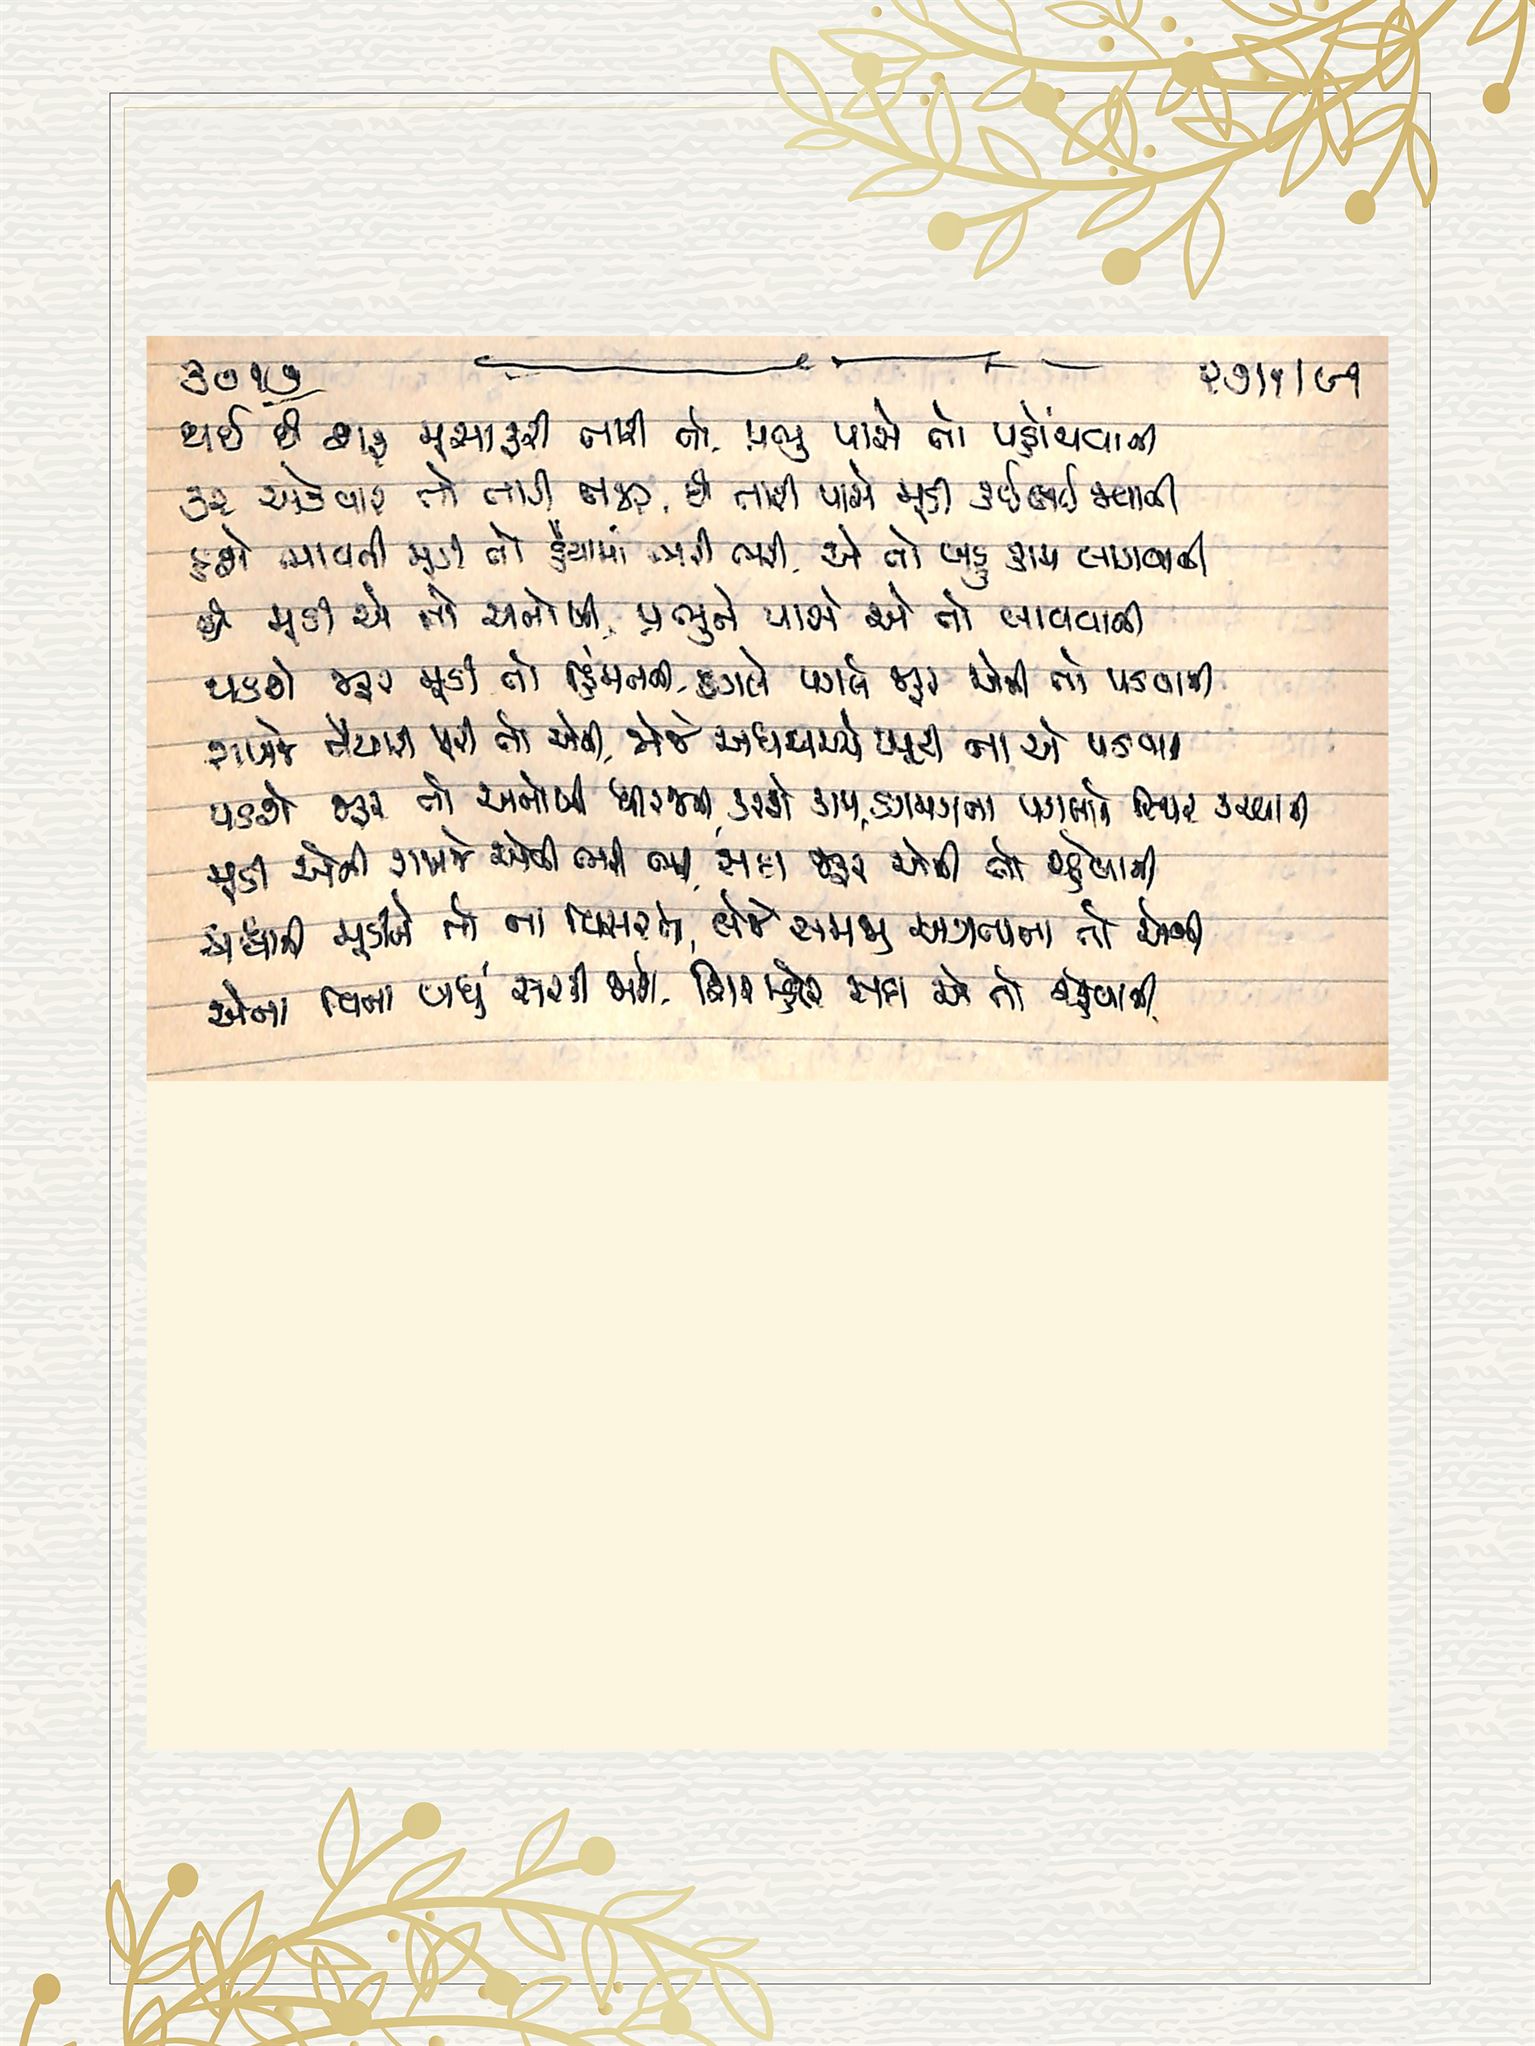 ૩૦૧૭ ૨૭/૧/૯૧
થઈ છે શરૂ મુસાફરી તારી તો, પ્રભુ પાસે તો પહોંચવાની
કર એકવાર તો તારી નજર, છે તારી પાસે મૂડી કઈ કઈ જમાની
હશે ભાવની મૂડી તો હૈયામાં ભરી ભરી, એ તો બહુ કામ લાગવાની
છે મૂડી એ તો અનોખી, પ્રભુને પાસે એ તો લાવવાની
પડશે જરૂર મૂડી તો હિંમતની, ડગલે પગલે જરૂર એની તો પડવાની
રાખજે તૈયારી પૂરી તો એની, જોજે અધવચ્ચે ખૂટી ના એ જવાની
પડશે જરૂર તો અનોખી ધીરજની, કરશે કામ, ડગમગતા પગલાંને સ્થિર કરવાની
મૂડી એની રાખજે એવી ભરી ભરી, સદા જરૂર એની તો રહેવાની
શ્રદ્ધાની મૂડીને તો ના વિસરજે, લેજે સમજી અગત્યતા તો એની
એના વિના બધું સરકી જાશે, શિરમોર સદા એ તો રહેવાની